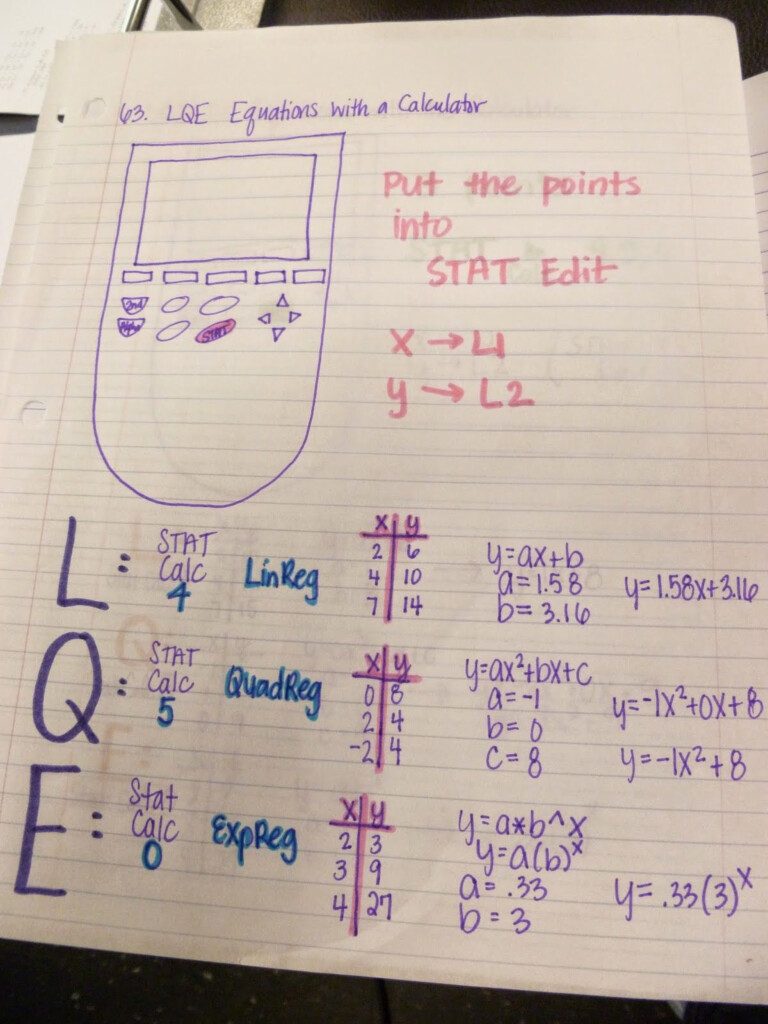 63. LQE Equations with a Calculator
Put the points
into
STAT Edit
X → L1
y → L2
2nd
Alpha
STAT
L : STAT
Calc
4
LinReg
x y
2 6
4 10
7 14
y=ax+b
a=1.58
b=3.16
y=1.58x+3.16
Q : STAT
Calc
5
QuadReg
x y
0 8
2 4
-2 4
y=ax²+bx+c
a=-1
b=0
c=8
y=-1x²+0x+8
y=-1x²+8
E : Stat
Calc
0
ExpReg
x y
2 3
3 9
4 27
y=a*b^x
y=a(b)ˣ
a=.33
b=3
y=.33(3)ˣ